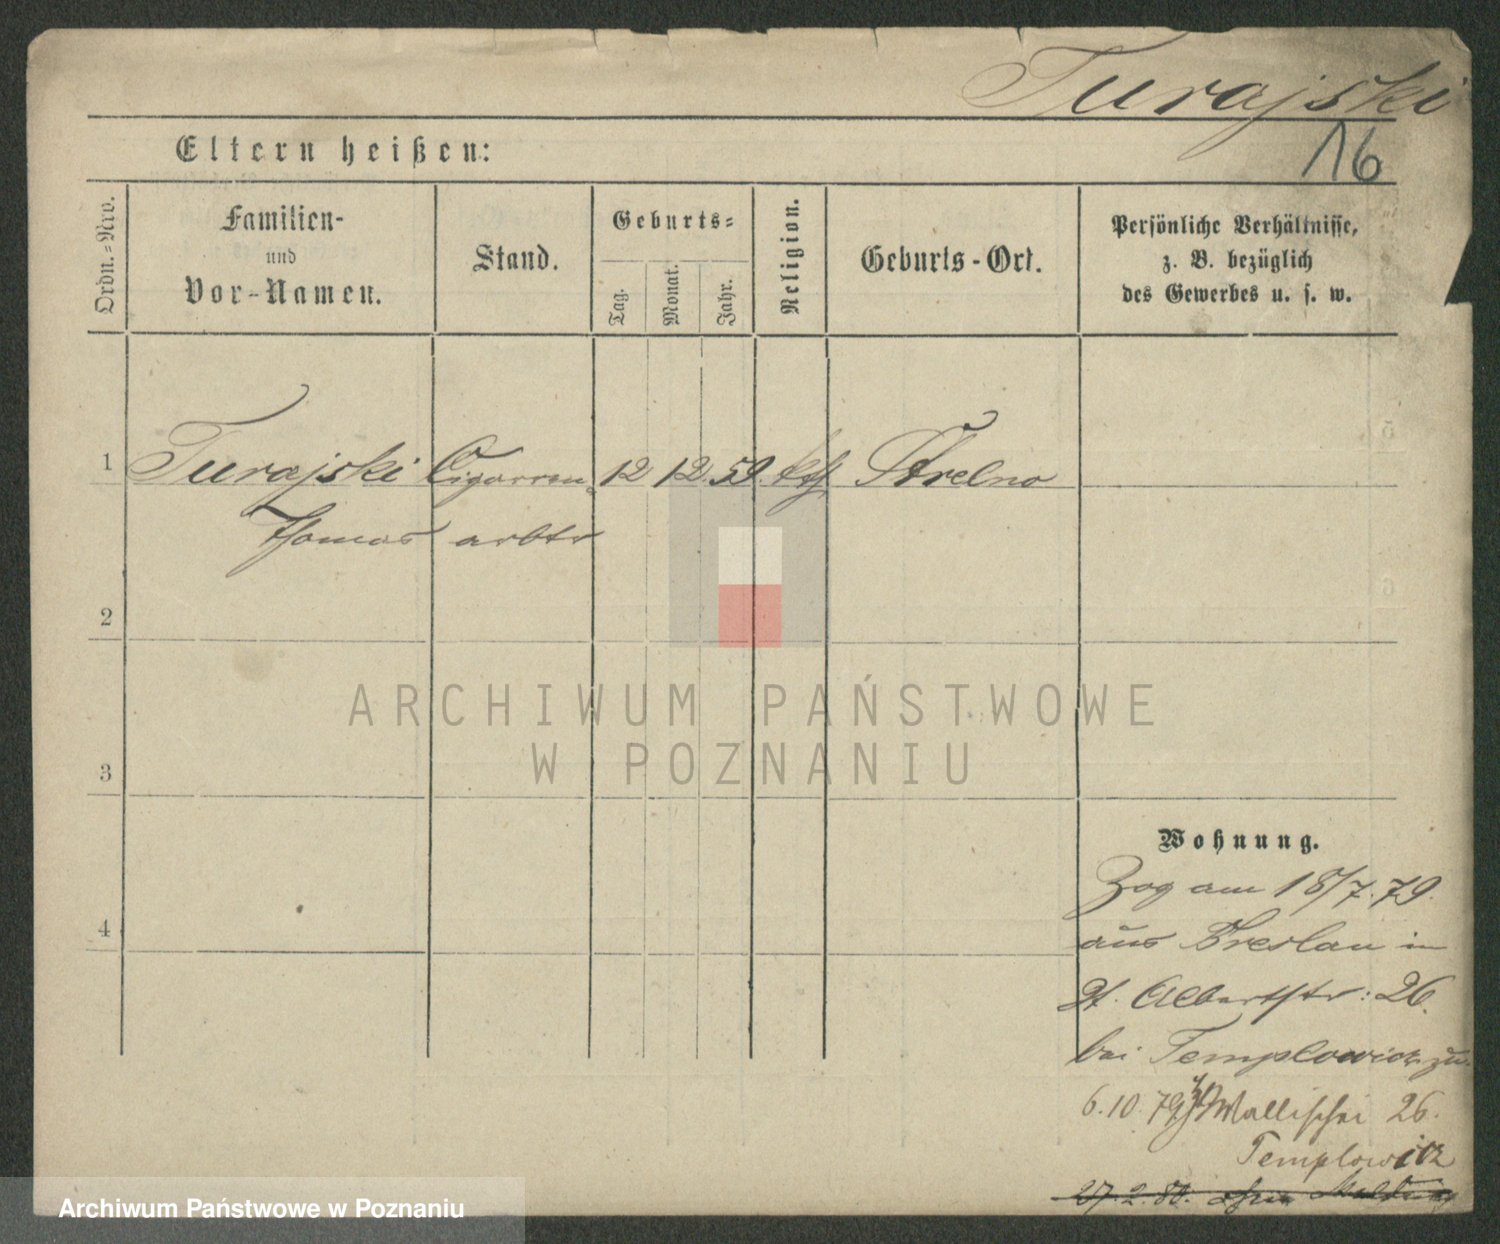 Turajski
16
Eltern heißen:
Ordn.-Nro.
Familien-
und
Vor-Namen.
Stand.
Geburts-
Tag.
Monat.
Jahr.
Religion.
Geburts-Ort.
Persönliche Verhältnisse,
z. B. bezüglich
des Gewerbes u. s. w.
1 Turajski Cigarren 12 12. 59. kth Strelno
Thomas arbtr
2
3
4
ARCHIWUM PAŃSTWOWE
W POZNANIU
Wohnung.
Zog am 18/7. 79.
aus Breslau in
St. Albertstr: 26.
bei Templowicz zu.
6.10. 79 Wallischei 26.
Templowicz
27. 2. 80. ohne Meldung
Archiwum Państwowe w Poznaniu